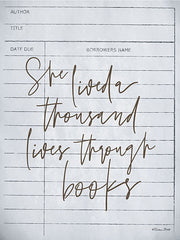 AUTHOR
TITLE
DATE DUE BORROWERS NAME
She lived a
thousand
lives through
books